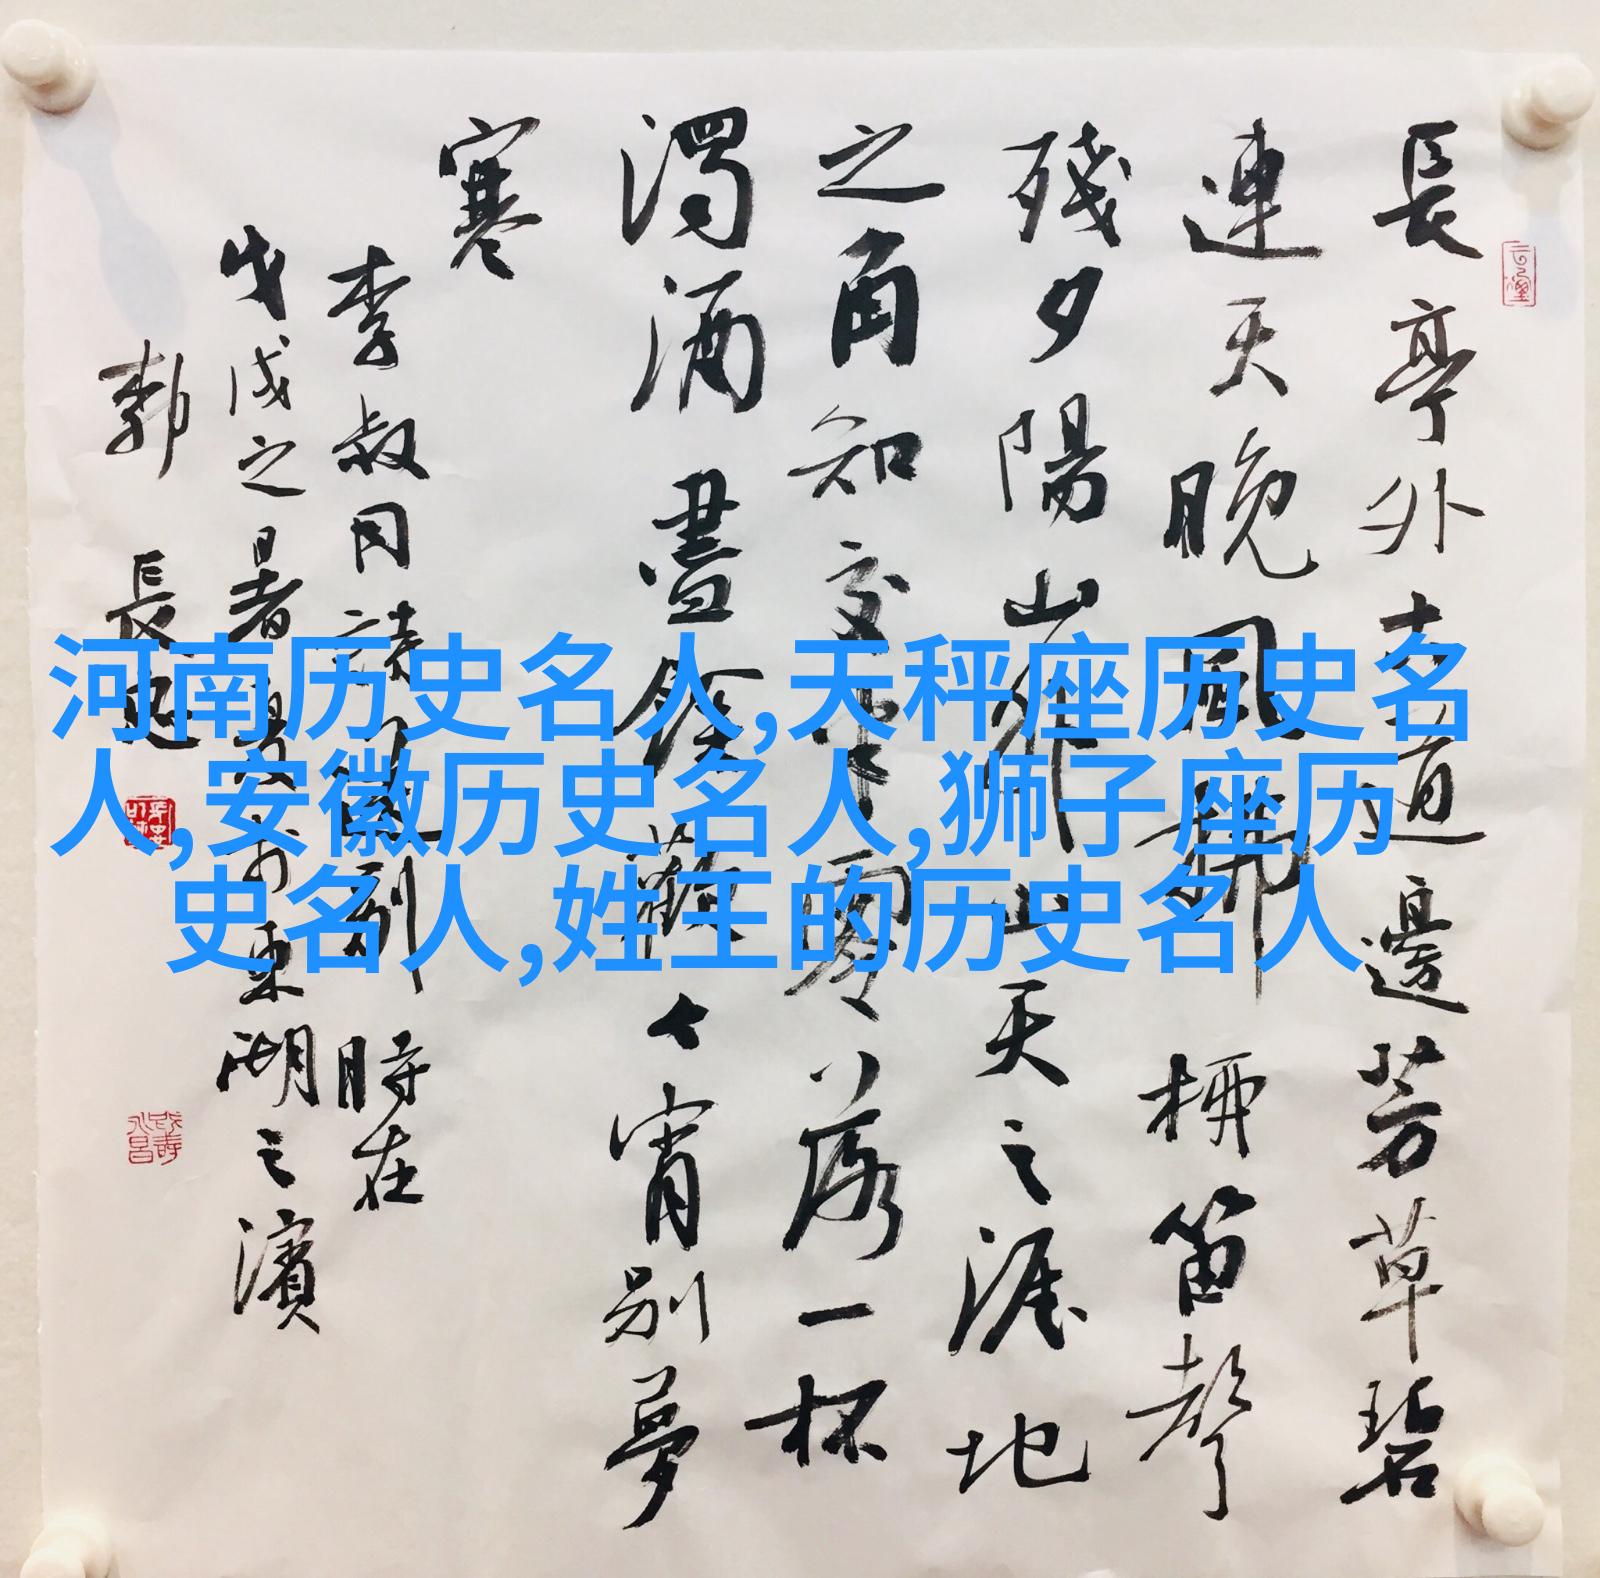 河南历史名人,天秤座历史名
人,安徽历史名人,狮子座历
史名人,姓王的历史名人
長亭外古道邊芳草碧
連天晚風拂柳笛聲
殘夕陽山外山天之涯地
之角知交半零落一杯
濁酒盡餘歡今宵别夢
寒
李叔同别時在
戊戌之暑夏於東湖之濱
長